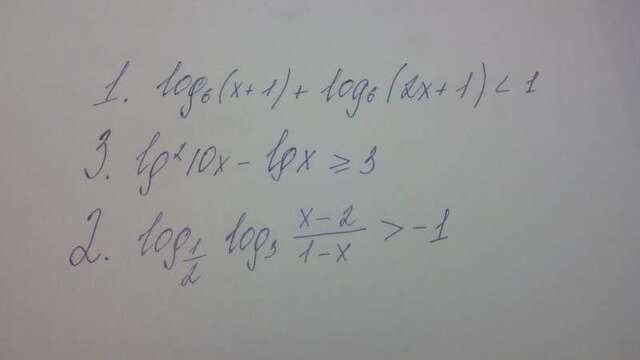 1. log₆(x+1) + log₆(2x+1) < 1
3. lg²10x - lgx ≥ 3
2. log_{1/2} log₃ \frac{x-2}{1-x} > -1